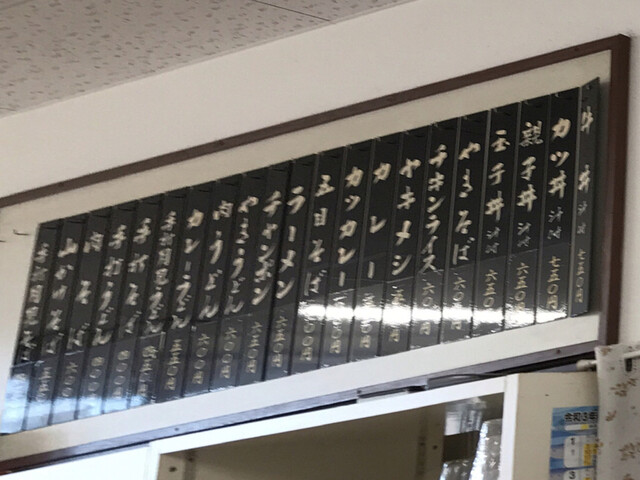 牛丼 汁付 七五〇円
カツ丼 汁付 七五〇円
親子丼 汁付 六五〇円
玉子丼 汁付 六五〇
やきそば 六〇
チキンライス 六〇
ヤキメシ
カレー
カツカレー
五目そば 〇〇円
ラーメン 五〇円
チャンポン 六五〇円
やきうどん 六〇〇円
肉うどん 六〇〇円
カレーうどん 五五〇円
手打月見うどん 四五〇円
手打そば 四〇〇円
手打うどん 四〇〇円
肉そば 六〇〇
山かけそば 六〇〇
手打月見そば
令和3年